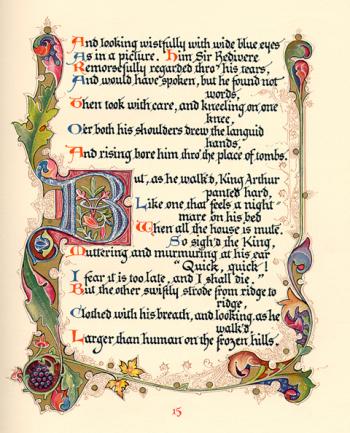 And looking wistfully with wide blue eyes
As in a picture. Him Sir Bedivere
Remorsefully regarded thro' his tears,
And would have spoken, but he found not
words,
Then took with care, and kneeling on one
knee,
O'er both his shoulders drew the languid
hands,
And rising bore him thro' the place of tombs.
But, as he walk'd, King Arthur
panted hard,
Like one that feels a night-
mare on his bed
When all the house is mute.
So sigh'd the King,
Muttering and murmuring at his ear
"Quick, quick!
I fear it is too late, and I shall die."
But the other swiftly strode from ridge to
ridge,
Clothed with his breath, and looking, as he
walk'd,
Larger than human on the frozen hills.
15